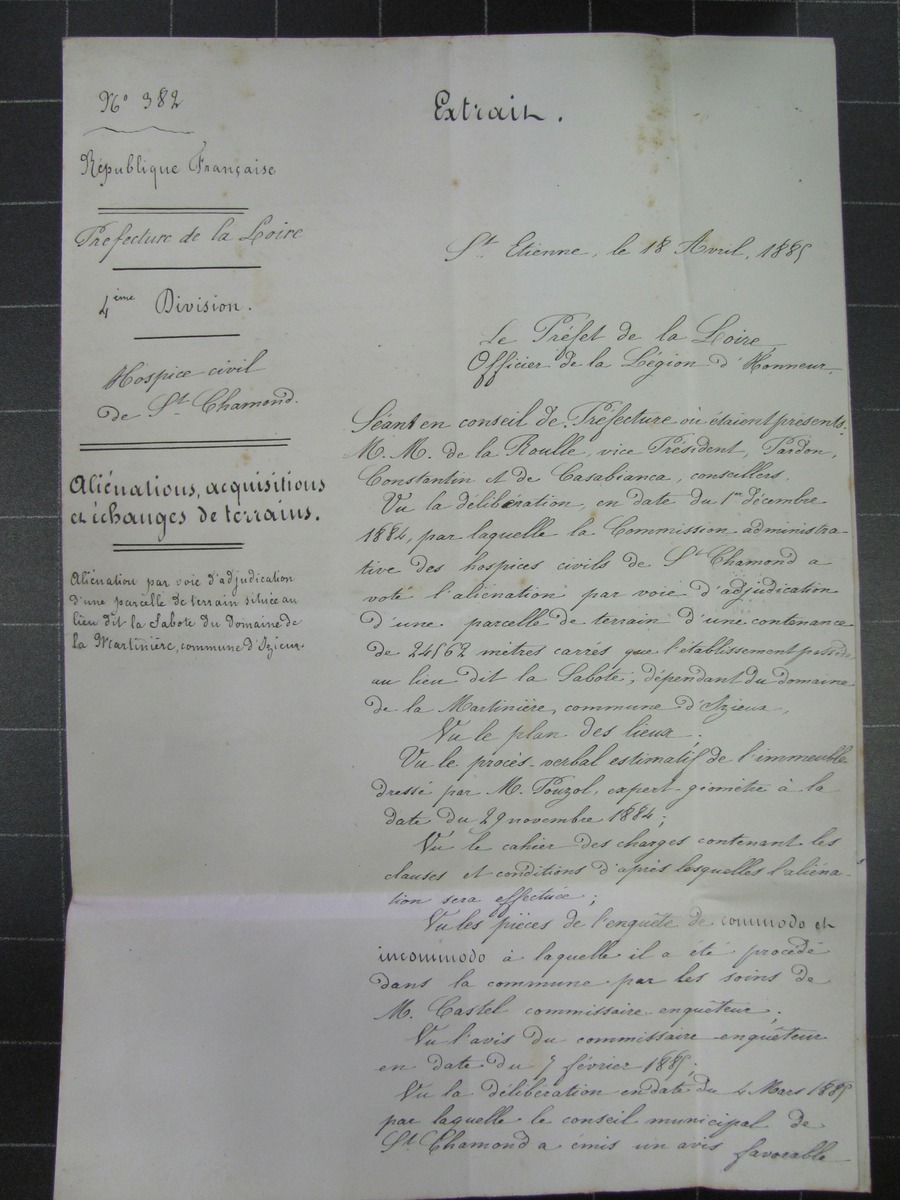 N° 382
République Française
Préfecture de la Loire
4ème Division.
Hospice civil
de St Chamond.
Aliénations, acquisitions
et échanges de terrains.
Aliénation par voie d'adjudication
d'une parcelle de terrain située au
lieu dit la Sabote du Domaine de
la Martinière, commune d'Izieux.
Extrait.
St Etienne, le 18 Avril, 1885
Le Préfet de la Loire,
Officier de la Légion d'Honneur,
Séant en conseil de Préfecture où étaient présents:
M. M. de la Roulle, vice Président, Pardon,
Constantin et de Casabianca, conseillers,
Vu la délibération, en date du 1er décembre
1884, par laquelle la Commission administra-
tive des hospices civils de St Chamond a
voté l'aliénation par voie d'adjudication
d'une parcelle de terrain d'une contenance
de 24562 mètres carrés que l'établissement possède
au lieu dit la Sabote, dépendant du domaine
de la Martinière, commune d'Izieux,
Vu le plan des lieux;
Vu le procès-verbal estimatif de l'immeuble
dressé par M. Pouzol, expert géomètre à la
date du 29 novembre 1884;
Vu le cahier des charges contenant les
clauses et conditions d'après lesquelles l'aliéna-
tion sera effectuée;
Vu les pièces de l'enquête de commodo et
incommodo à laquelle il a été procédé
dans la commune par les soins de
M. Castel commissaire enquêteur;
Vu l'avis du commissaire enquêteur
en date du 7 février 1885;
Vu la délibération en date du 4 Mars 1885
par laquelle le conseil municipal de
St Chamond a émis un avis favorable